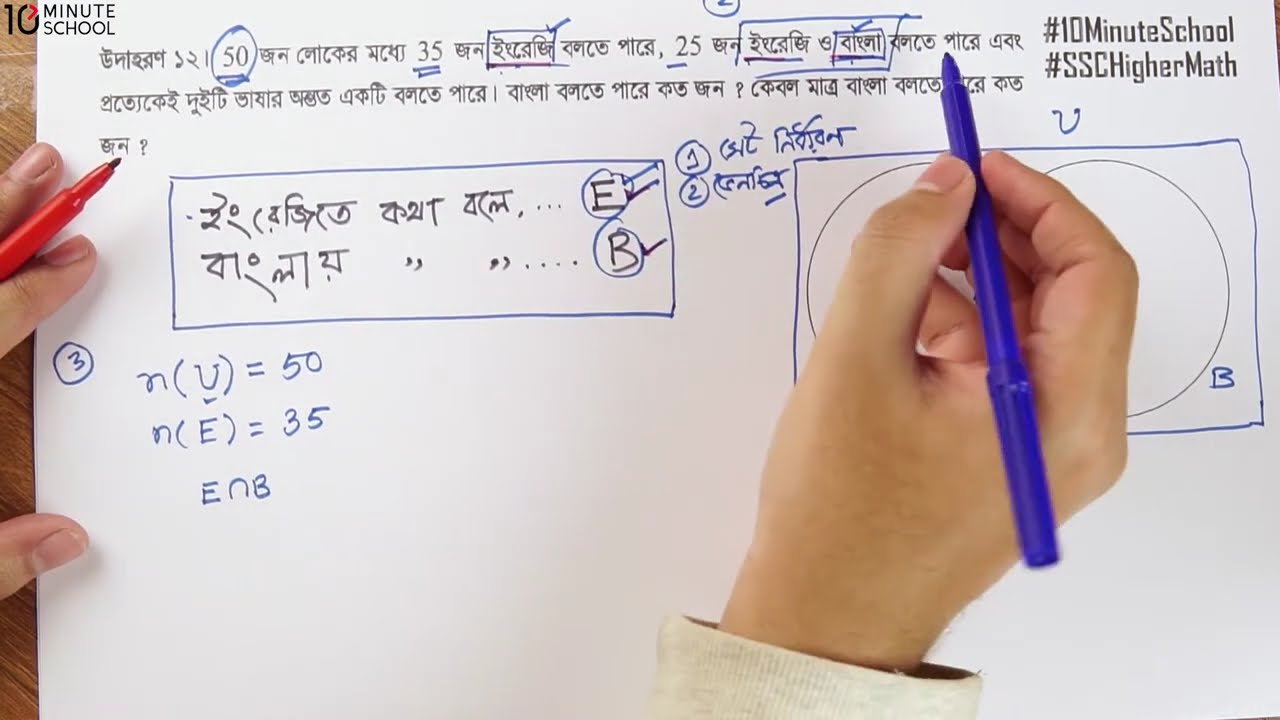 10 MINUTE SCHOOL
#10MinuteSchool
#SSCHigherMath
2
উদাহরণ ১২। 50 জন লোকের মধ্যে 35 জন ইংরেজি বলতে পারে, 25 জন ইংরেজি ও বাংলা বলতে পারে এবং
প্রত্যেকেই দুইটি ভাষার অন্তত একটি বলতে পারে। বাংলা বলতে পারে কত জন ? কেবল মাত্র বাংলা বলতে পারে কত
জন ?
1 সেট নির্ধারন
2 ভেনচিত্র
ইংরেজিতে কথা বলে, ... E
বাংলায় " " .... B
U
B
3
n(U) = 50
n(E) = 35
E∩B